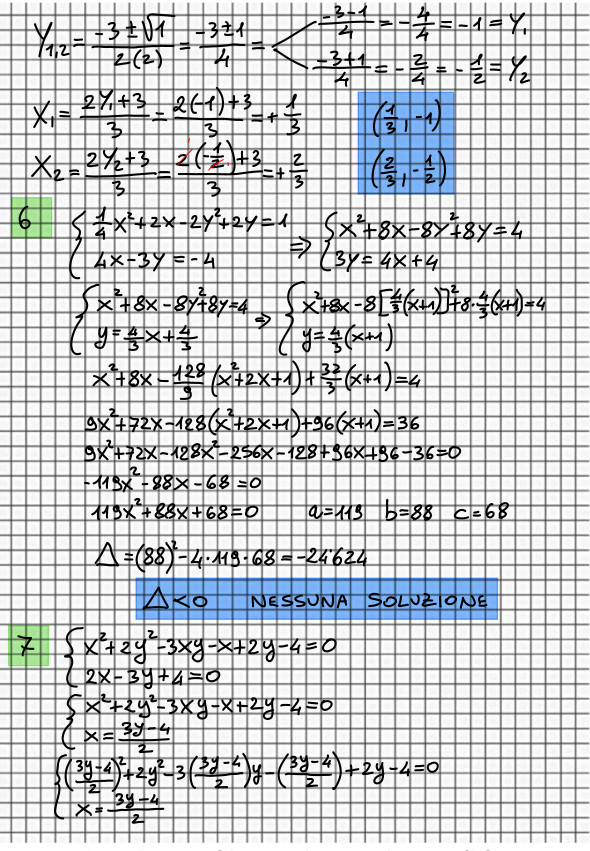 Y₁,₂ = (-3 ± √1)/(2(2)) = (-3 ± 1)/4 = (-3-1)/4 = -4/4 = -1 = Y₁
(-3+1)/4 = -2/4 = -1/2 = Y₂
X₁ = (2Y₁+3)/3 = (2(-1)+3)/3 = +1/3 (1/3, -1)
X₂ = (2Y₂+3)/3 = (2(-1/2)+3)/3 = +2/3 (2/3, -1/2)
6 { 1/4 x² + 2x - 2y² + 2y = 1 ⇒ { x² + 8x - 8y² + 8y = 4
4x - 3y = -4 3y = 4x + 4
{ x² + 8x - 8y² + 8y = 4 ⇒ { x² + 8x - 8[4/3(x+1)]² + 8·4/3(x+1) = 4
y = 4/3 x + 4/3 y = 4/3(x+1)
x² + 8x - 128/9 (x² + 2x + 1) + 32/3 (x+1) = 4
9x² + 72x - 128(x² + 2x + 1) + 96(x+1) = 36
9x² + 72x - 128x² - 256x - 128 + 96x + 96 - 36 = 0
-119x² - 88x - 68 = 0
119x² + 88x + 68 = 0 a = 119 b = 88 c = 68
Δ = (88)² - 4·119·68 = -24'624
Δ < 0 NESSUNA SOLUZIONE
7 { x² + 2y² - 3xy - x + 2y - 4 = 0
2x - 3y + 4 = 0
{ x² + 2y² - 3xy - x + 2y - 4 = 0
x = (3y-4)/2
{ ((3y-4)/2)² + 2y² - 3((3y-4)/2)y - ((3y-4)/2) + 2y - 4 = 0
x = (3y-4)/2